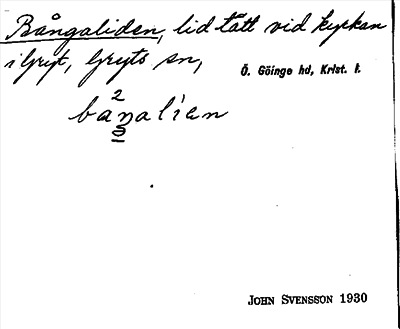 Bångaliden, lid tätt vid kyrkan
i Gryt, Gryts sn,
Ö. Göinge hd, Krist. l.
2
baŋalien
John Svensson 1930